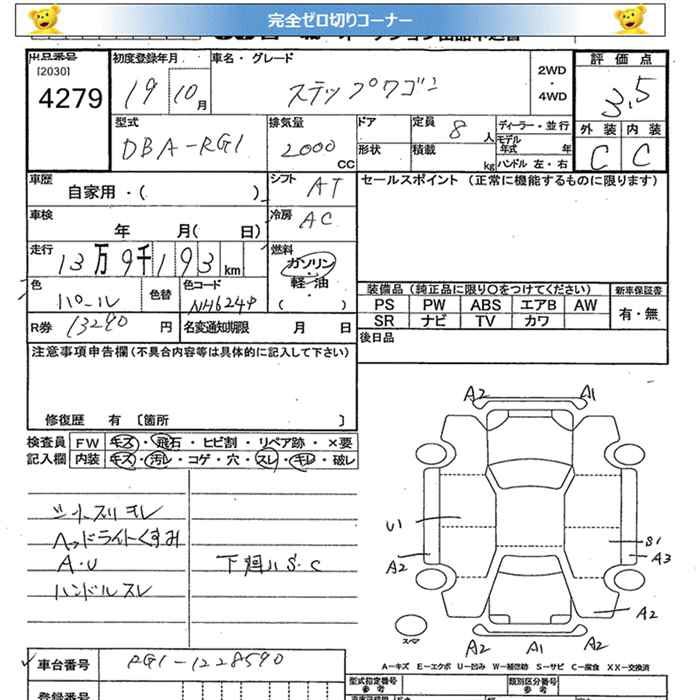 完全ゼロ切りコーナー
出品番号 初度登録年月 車名・グレード 評価点
[2030] 4279 19 10月 ステップワゴン 2WD・4WD 3.5
型式 排気量 ドア 定員 8人 ディーラー・並行 外装 内装
DBA-RG1 2000CC 形状 積載 kg モデル年式 年 C C
ハンドル 左・右
車歴 自家用・( ) シフト AT セールスポイント (正常に機能するものに限ります)
車検 年 月( 日) 冷房 AC
走行 13万9千193km 燃料 ガソリン・軽・油 ( )
色 パール 色替 色コード NH624P
装備品(純正品に限り○をつけてください) 新車保証書
PS PW ABS エアB AW 有・無
SR ナビ TV カワ
R券 13290円 名変通知期限 月 日
後日品
注意事項申告欄(不具合内容等は具体的に記入して下さい)
修復歴 有 [箇所 ]
検査員 FW キズ・飛石・ヒビ割・リペア跡・×要
記入欄 内装 キズ・汚レ・コゲ・穴・スレ・キレ・破レ
シートスリキレ
ヘッドライトくすみ
A・U 下廻りS・C
ハンドルスレ
A2 A1
U1 S1
A2 A3
A2
スペア
A2 A1 A2
A-キズ E-エクボ U-凹み W-補修跡 S-サビ C-腐食 XX-交換済
車台番号 RG1-1228590
型式指定番号 参考 類別区分番号 参考
登録番号